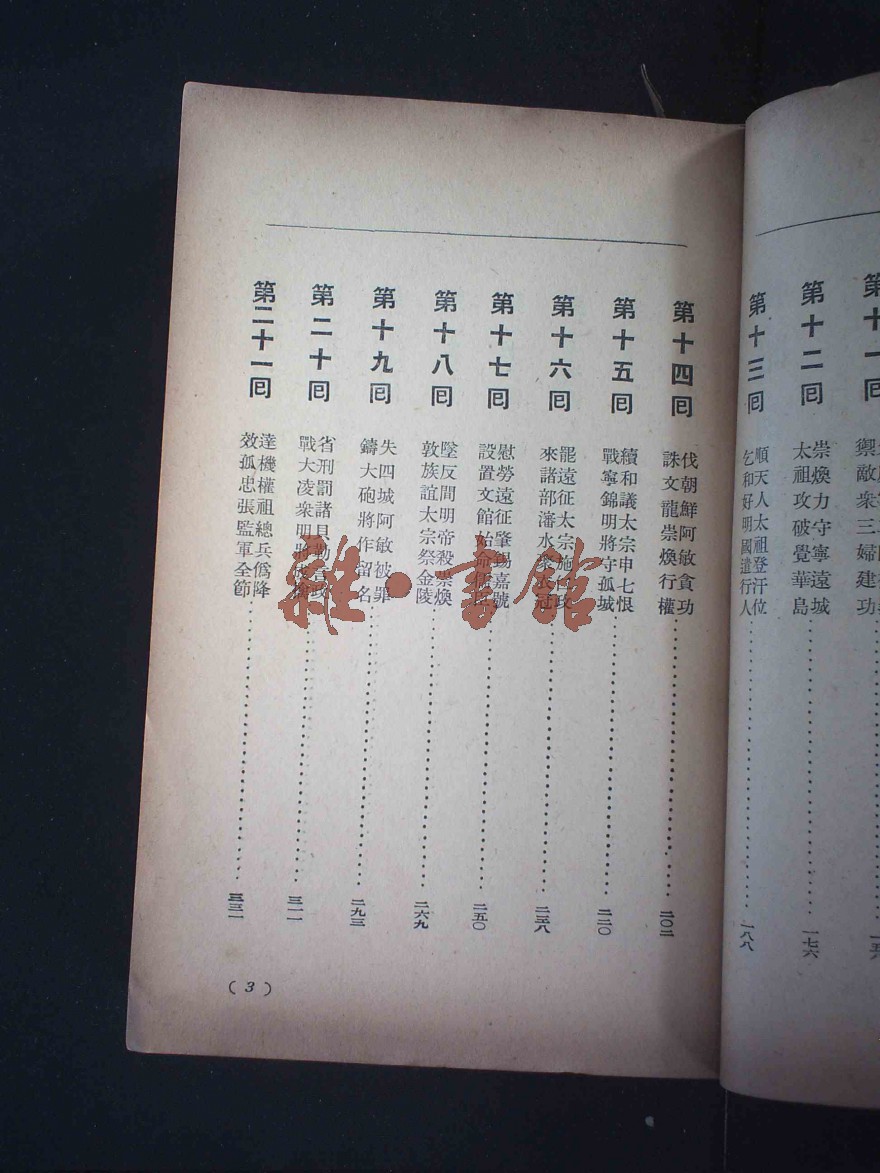 第十一回
第十二回
崇煥力守寧遠城
太祖攻破覺華島
一七六
第十三回
順天人太祖登汗位
乞和好明國遣行人
一八八
第十四回
伐朝鮮阿敏貪功
誅文龍崇煥行權
二〇二
第十五回
續和議太宗申七恨
戰寧錦明將守孤城
二二〇
第十六回
罷遠征太宗施政
來諸部瀋水衣冠
二三八
第十七回
慰勞遠征肇錫嘉號
設置文館始命儒臣
二五〇
第十八回
墜反間明帝殺崇煥
敦族誼太宗祭金陵
二六九
第十九回
失四城阿敏被罪
鑄大砲將作留名
二九三
第二十回
省刑罰諸貝勒政
戰大凌衆明將被擒
三一一
第二十一回
達機權祖總兵僞降
效孤忠張監軍全節
三三一
(3)
雜·書館